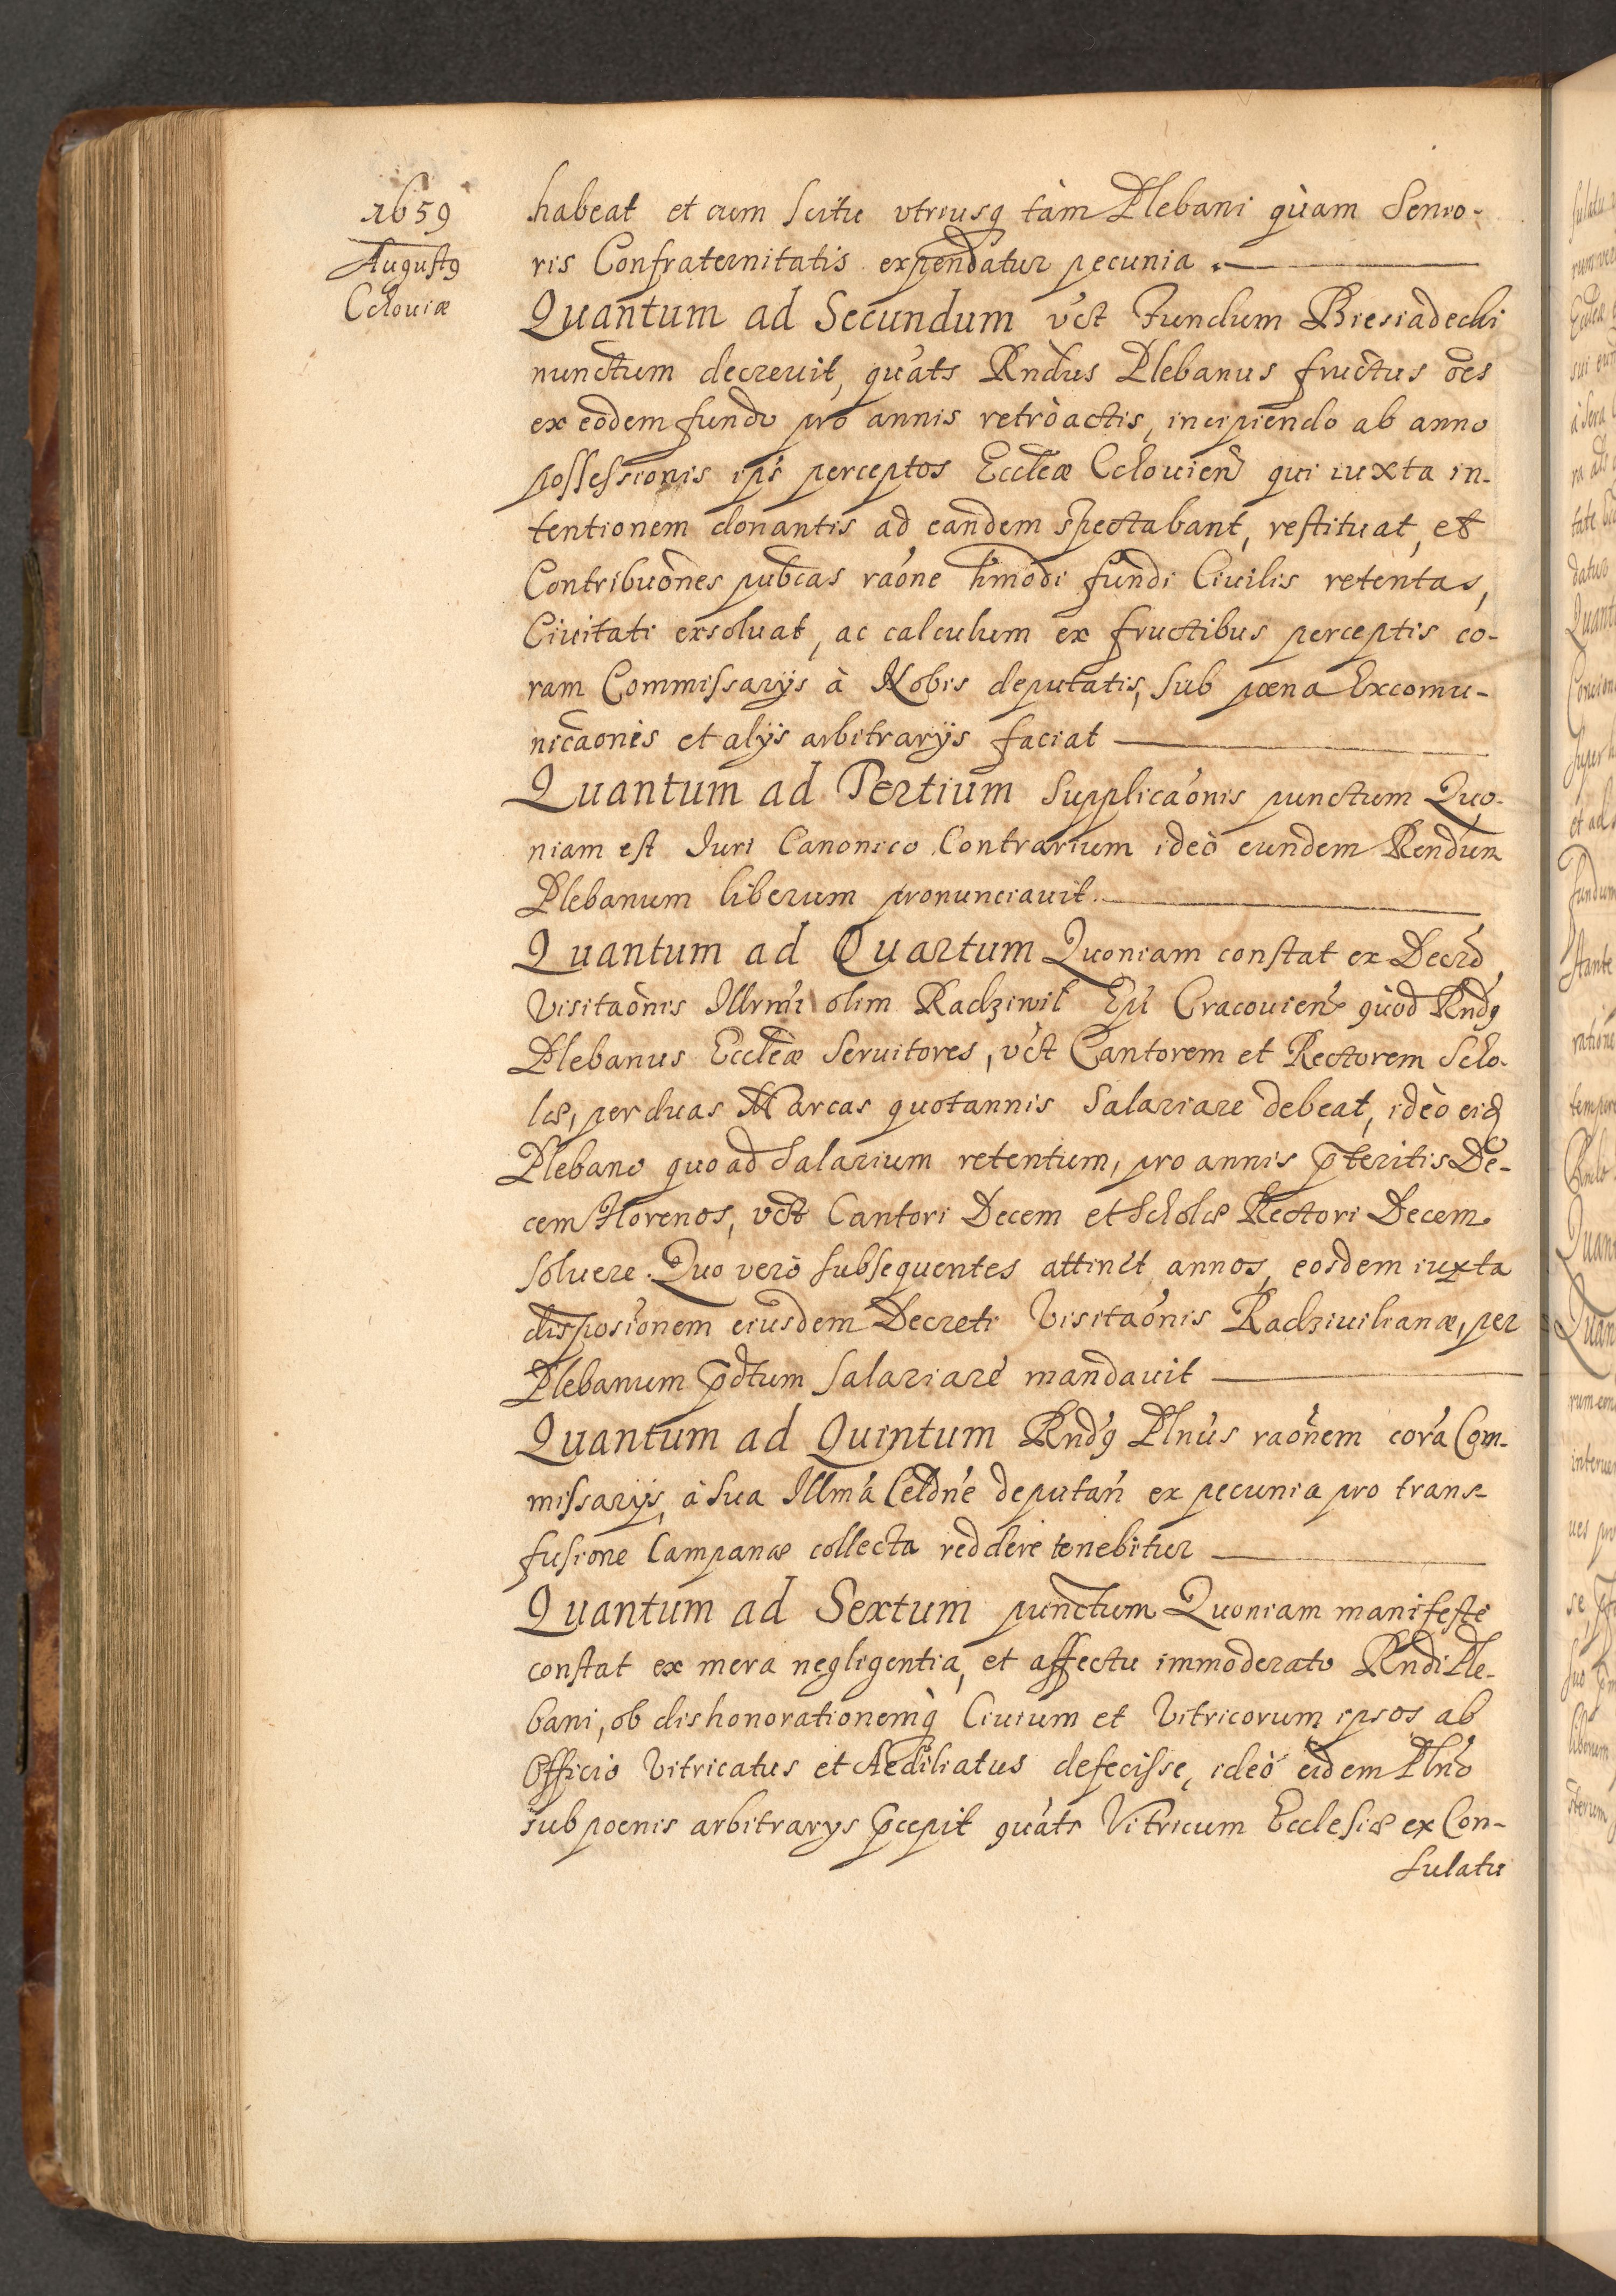 1659
Augustꝰ
Cchoviæ
habeat et cum scitu vtriusq tàm Plebani quàm Senio-
ris Confraternitatis expendatur pecunia.
Quantum ad Secundum vct Fundum Biesiadecki
nunctum decrevit, quats Rndus Plebanus fructus oes
ex eodem fundo pro annis retròactis, incipiendo ab anno
possessionis ips perceptos Eccleæ Cchouien qui iuxta in-
tentionem donantis ad eandem spectabant, restituat, et
Contribuones pubcas raone hmodi fundi Civilis retentas,
Civitati exsoluat, ac calculum ex fructibus perceptis co-
ram Commissarijs à Nobis deputatis, sub pœna Excomu-
nicaonis et alijs arbitrarijs faciat
Quantum ad Tertium Supplicaonis punctum Quo-
niam est Iuri Canonico Contrarium ideò eundem Rendum
Plebanum liberum pronunciavit.
Quantum ad Quartum Quoniam constat ex Decro
Visitaonis Illrmi olim Radziwil Epi Cracovien quòd Rndꝰ
Plebanus Eccleæ Servitores, vct Cantorem et Rectorem Scho-
læ, per duas Marcas quotannis Salariare debeat, ideò eid
Plebano quo ad Salarium retentum, pro annis pteritis De-
cem Florenos, vct Cantori Decem et Scholæ Rectori Decem
soluere. Quo verò subsequentes attinet annos, eosdem iuxta
disposionem eiusdem Decreti Visitaonis Radzivilianæ, per
Plebanum pdtum Salariare mandavit
Quantum ad Quintum Rndꝰ Plnus raonem cora Com-
missarijs, à Sua Illma Celdne deputan ex pecunia pro trans-
fusione Campanæ collecta reddere tenebitur
Quantum ad Sextum punctum Quoniam manifestè
constat ex mera negligentia, et affectu immoderato Rndi Ple-
bani, ob dishonorationemq Civium et Vitricorum ipsos ab
Officio Vitricatus et Aediliatus defecisse, ideò eidem Plno
sub poenis arbitrarys pcepit quats Vitricum Ecclesiæ ex Con-
sulatu